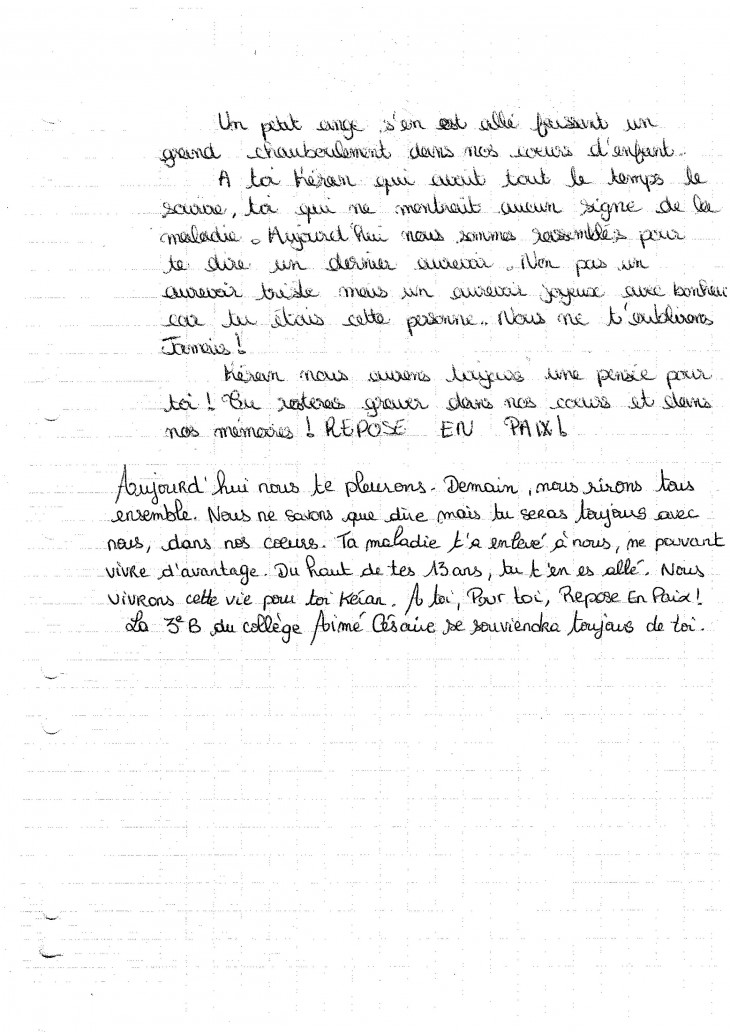 Un petit ange s'en est allé faissant un
grand chamboulement dans nos cœurs d'enfant.
A toi Kéran qui avait tout le temps le
sourire, toi qui ne montrait aucun signe de la
maladie. Aujourd'hui nous sommes rassemblés pour
te dire un dernier aurevoir. Non pas un
aurevoir triste mais un aurevoir joyeux avec bonheur
car tu étais cette personne.. Nous ne t'oublirons
Jamais !
Kéran nous aurons toujours une pensée pour
toi ! Tu resteras graver dans nos cœurs et dans
nos mémoires ! REPOSE EN PAIX !
Aujourd'hui nous te pleurons. Demain, nous rirons tous
ensemble. Nous ne savons que dire mais tu seras toujours avec
nous, dans nos cœurs. Ta maladie t'a enlevé à nous, ne pouvant
vivre d'avantage. Du haut de tes 13 ans, tu t'en es allé. Nous
vivrons cette vie pour toi Kéran. A toi, Pour toi, Repose En Paix !
La 3e B du collège Aimé Césaire se souviendra toujours de toi.